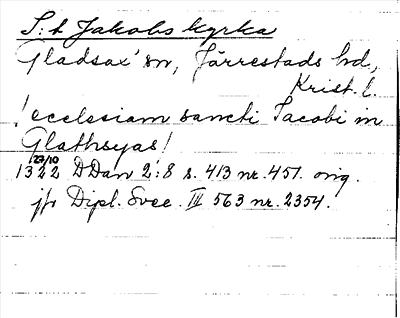 S:t Jakobs kyrka
Gladsax' sn, Järrestads hd.,
Krist. l.
! ecclesiam sancti Iacobi in
Glathsyas!
27/10
1322 DDan 2:8 s. 413 nr. 451. orig.
jfr Dipl. Svec. III 563 nr. 2354.